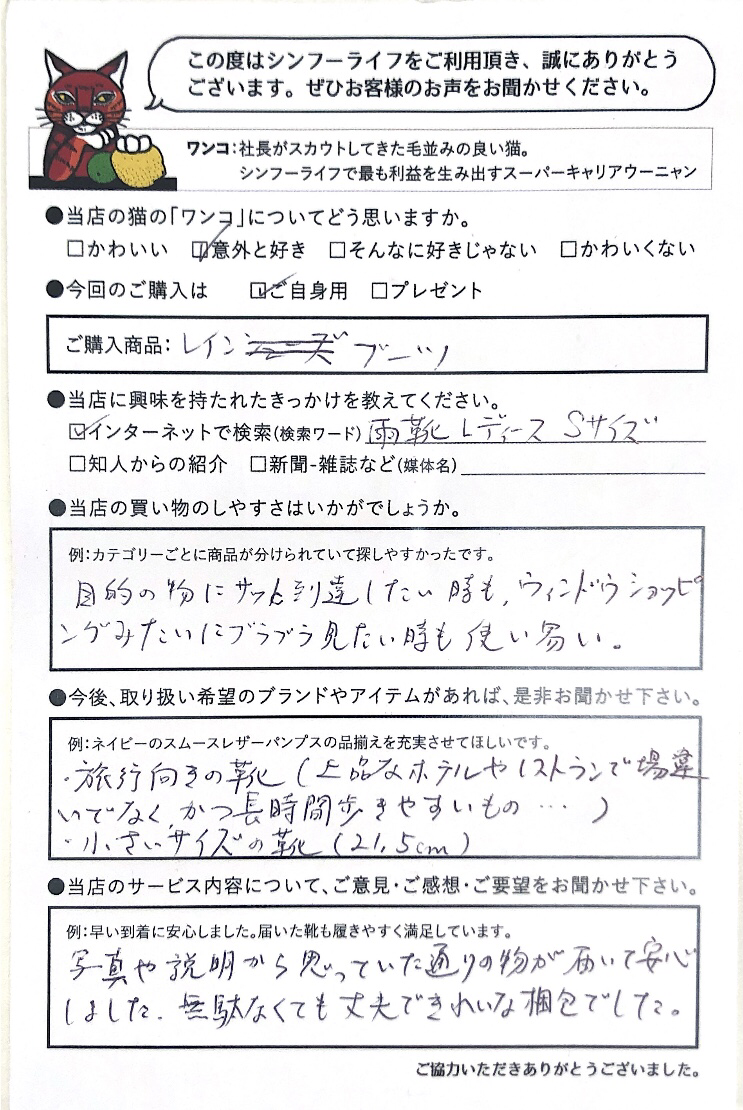 この度はシンフーライフをご利用頂き、誠にありがとう
ございます。ぜひお客様のお声をお聞かせください。
ワンコ：社長がスカウトしてきた毛並みの良い猫。
シンフーライフで最も利益を生み出すスーパーキャリアウーニャン
●当店の猫の「ワンコ」についてどう思いますか。
□かわいい ☑意外と好き □そんなに好きじゃない □かわいくない
●今回のご購入は ☑ご自身用 □プレゼント
ご購入商品：レインブーツ
●当店に興味を持たれたきっかけを教えてください。
☑インターネットで検索(検索ワード) 雨靴 レディース Sサイズ
□知人からの紹介 □新聞-雑誌など(媒体名)
●当店の買い物のしやすさはいかがでしょうか。
例：カテゴリーごとに商品が分けられていて探しやすかったです。
目的の物にサッと到達したい時も、ウィンドウショッピ
ングみたいにブラブラ見たい時も使い易い。
●今後、取り扱い希望のブランドやアイテムがあれば、是非お聞かせ下さい。
例：ネイビーのスムースレザーパンプスの品揃えを充実させてほしいです。
・旅行向きの靴(上品なホテルやレストランで場違
いでなく、かつ長時間歩きやすいもの…)
・小さいサイズの靴(21.5cm)
●当店のサービス内容について、ご意見・ご感想・ご要望をお聞かせ下さい。
例：早い到着に安心しました。届いた靴も履きやすく満足しています。
写真や説明から思っていた通りの物が届いて安心
しました。無駄なくても丈夫できれいな梱包でした。
ご協力いただきありがとうございました。